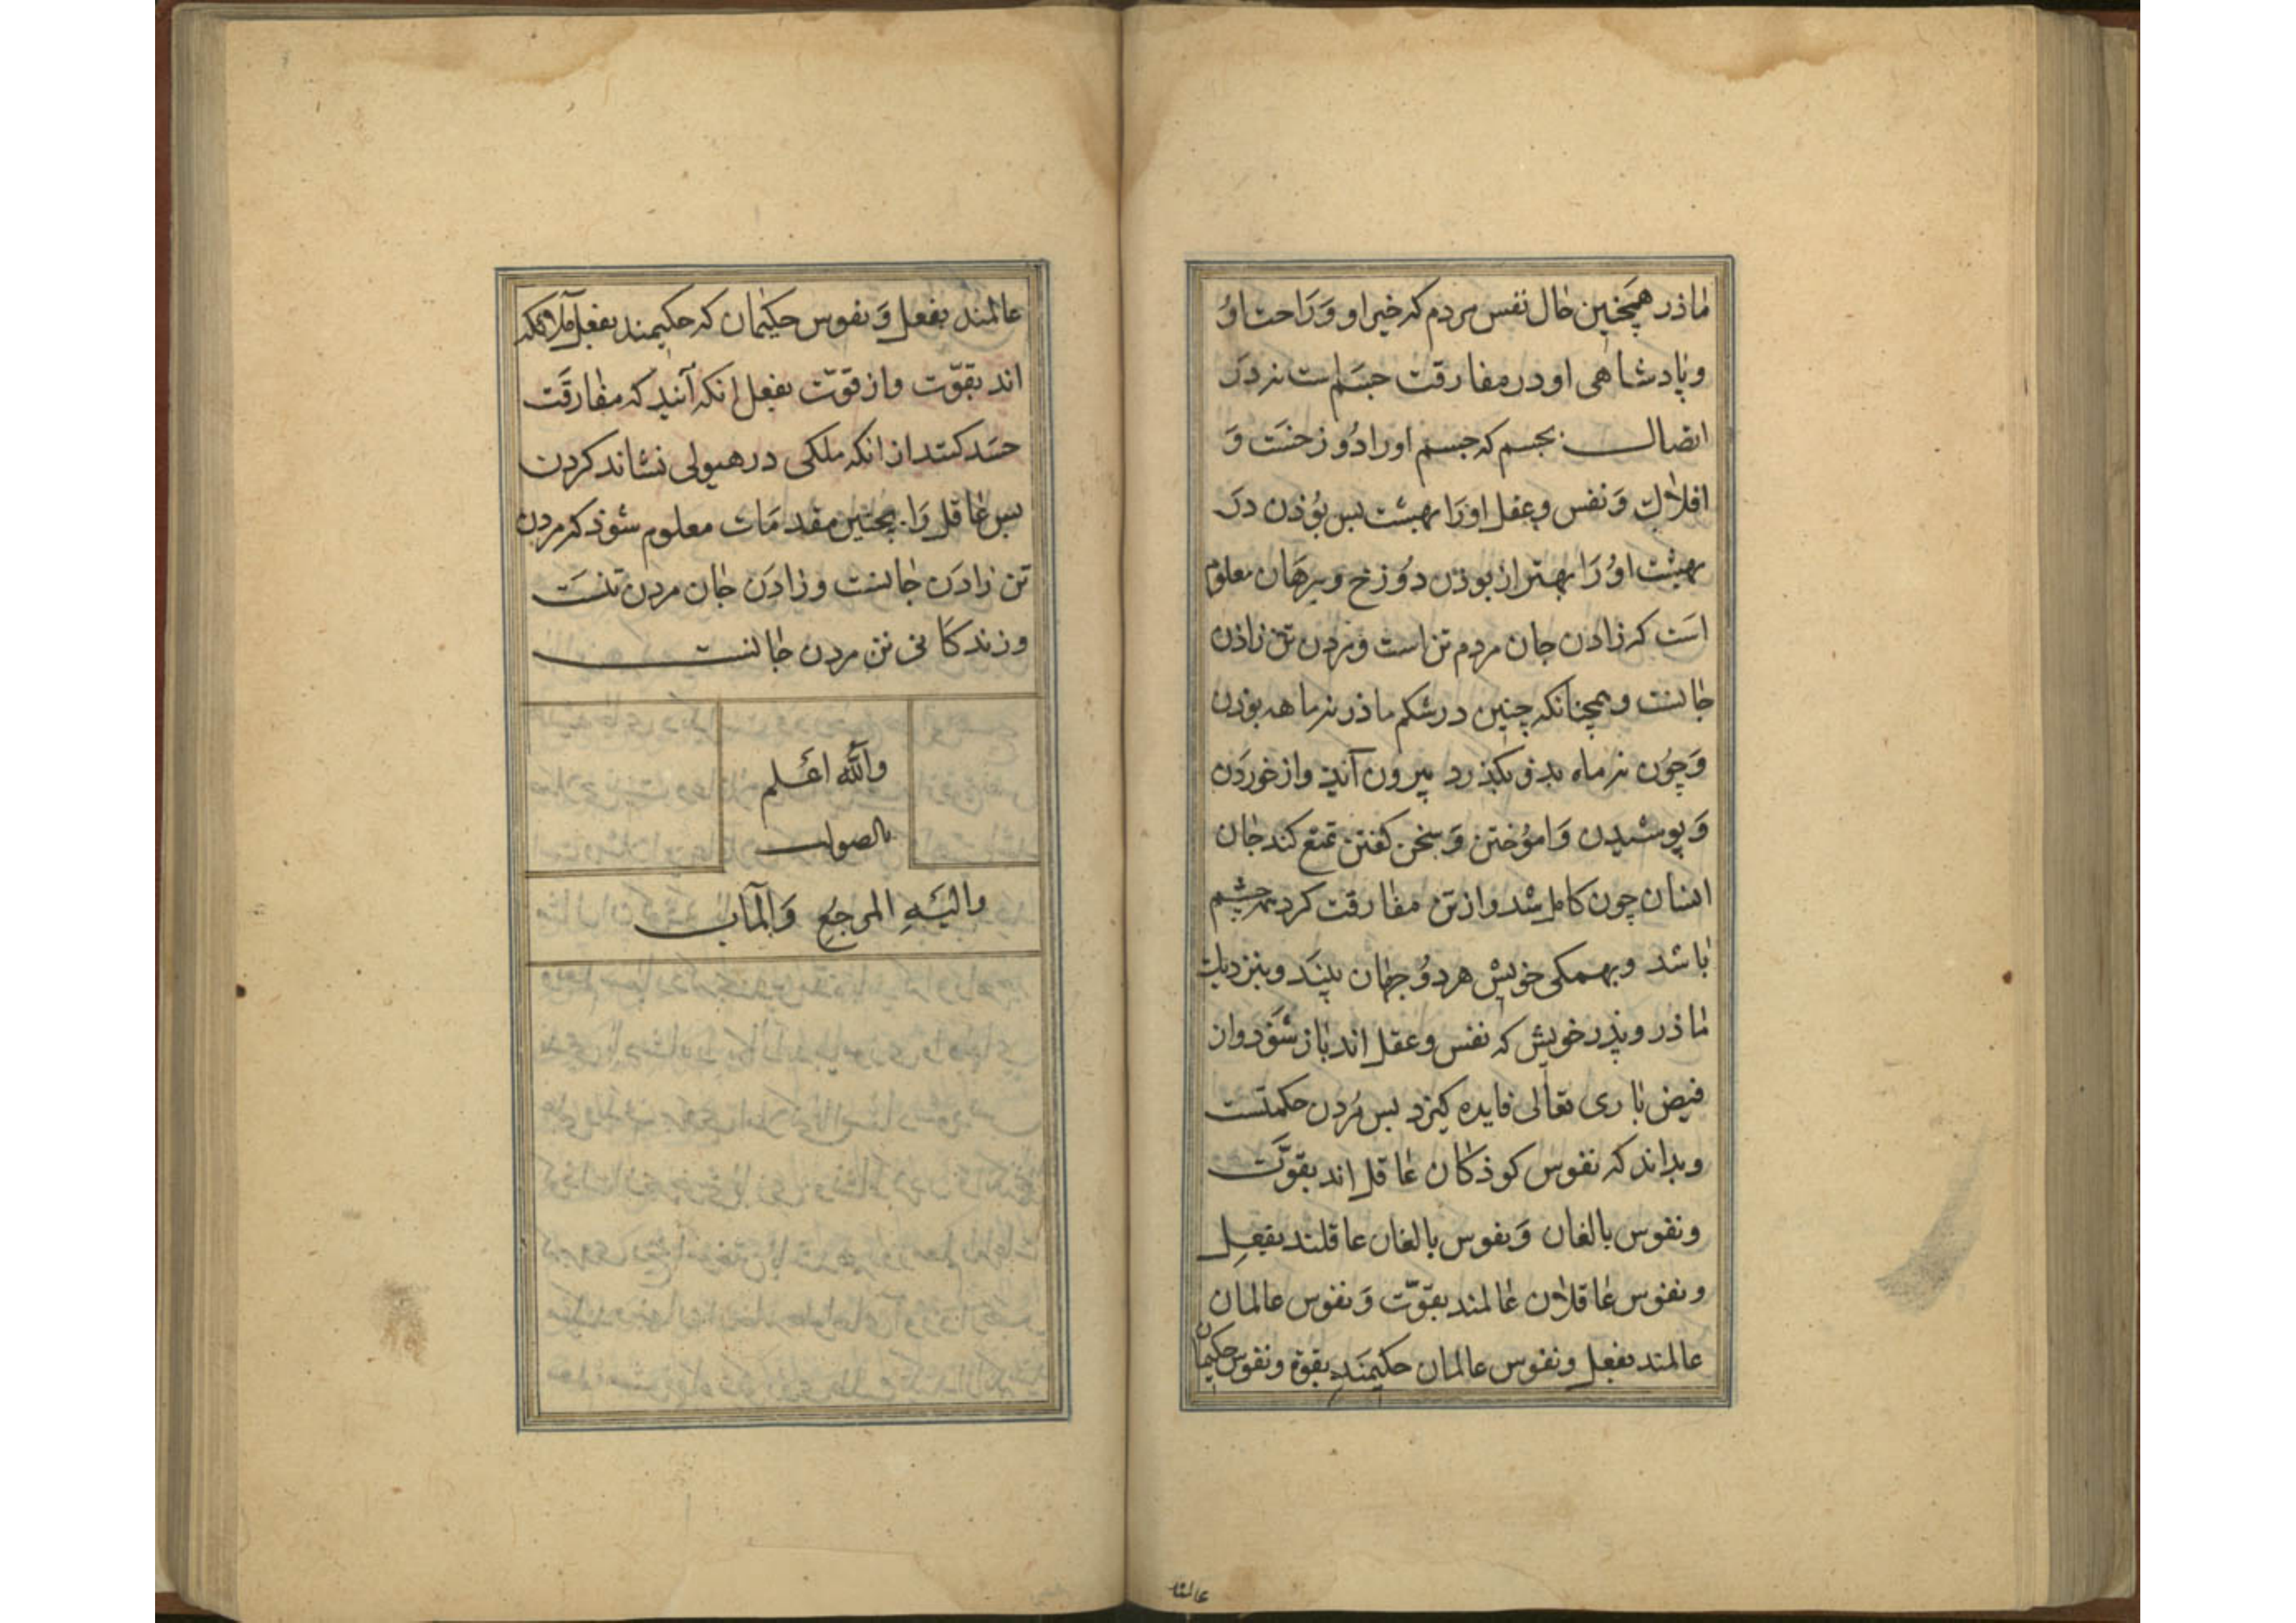 ماذر همچنین حال نفس مردم که خیر او و راحت او
و پادشاهی او در مفارقت جسم است نه در
اتصال بجسم که جسم او را دوزخست و
افلاك و نفس و عقل او را بهشت بس بوذن در
بهشت او را بهتر از بوذن دوزخ و ببرهان معلوم
است که زادن جان مردم تن است و مردن تن زاذن
جانست و همچنانکه چنین در شکم ماذر نه ماهه بوذن
و چون نه ماه بذو بکذرد بیرون آید و از خوردن
و پوشیدن و اموختن و سخن کفتن تمتع کند جان
انسان چون کامل شد و از تن مفارقت کرد همه چشم
باشد و بهمکی خویش هر دو جهان بیند و بنزدیك
ماذر و پذر خویش که نفس و عقل اند باز شوذ و از
فیض باری تعالی فایده کیرد بس مردن حکمتست
و بداند که نفوس کوذکان عاقل اند بقوّت
و نفوس بالغان و نفوس بالغان عاقلند بفعل
و نفوس عاقلان عالمند بقوّت و نفوس عالمان
عالمند بفعل و نفوس عالمان حکیمند بقوة و نفوس حکیمان
عالمند بفعل و نفوس حکیمان که حکیمند بفعل ملائکه
اند بقوّت و از قوّت بفعل انکه آیند که مفارقت
جسد کنند از انکه ملکی در هیولی نشاند کردن
بس عاقل را بچنین مقدمات معلوم شوذ که مردن
تن زادن جانست و زادن جان مردن تنست
و زندکانی تن مردن جانست
والله اعلم
بالصواب
والیه المرجع والمآب